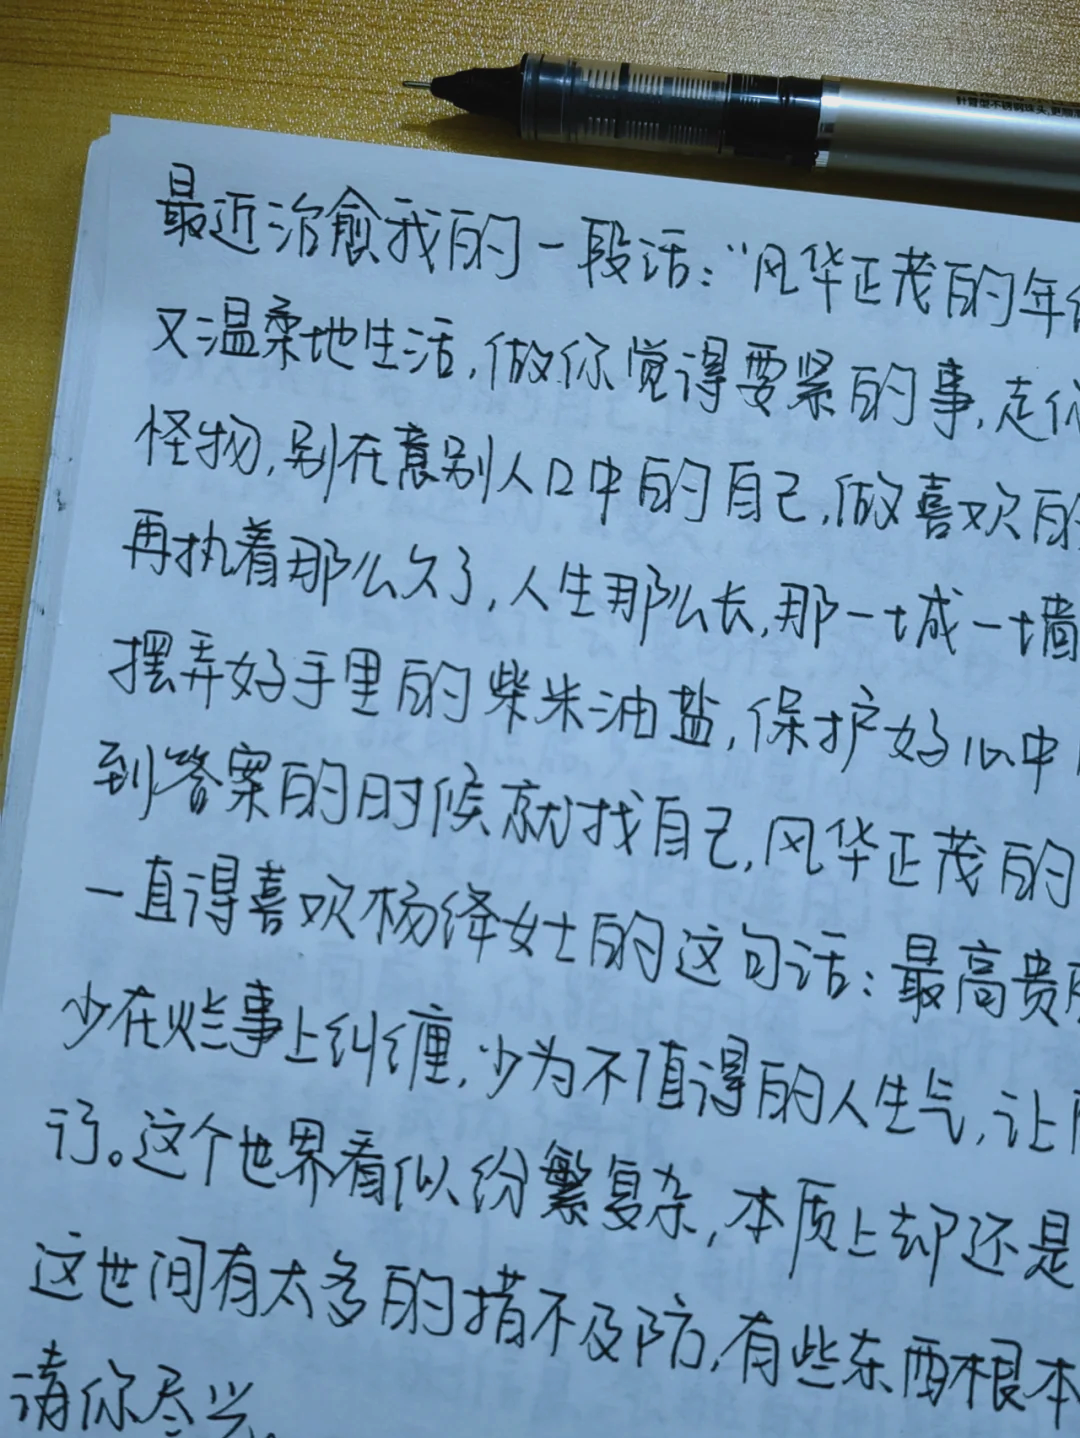 针管型不锈钢珠头
最近治愈我的一段话：“风华正茂的年
又温柔地生活，做你觉得要紧的事，走你
怪物，别在意别人口中的自己，做喜欢的
再执着那么久了，人生那么长，那一城一墙
摆弄好手里的柴米油盐，保护好心中
到答案的时候就找自己，风华正茂的
一直得喜欢杨绛女士的这句话：最高贵
少在烂事上纠缠，少为不值得的人生气，让
讶。这个世界看似纷繁复杂，本质上却还是
这世间有太多的措不及防，有些东西根本
请你尽兴。